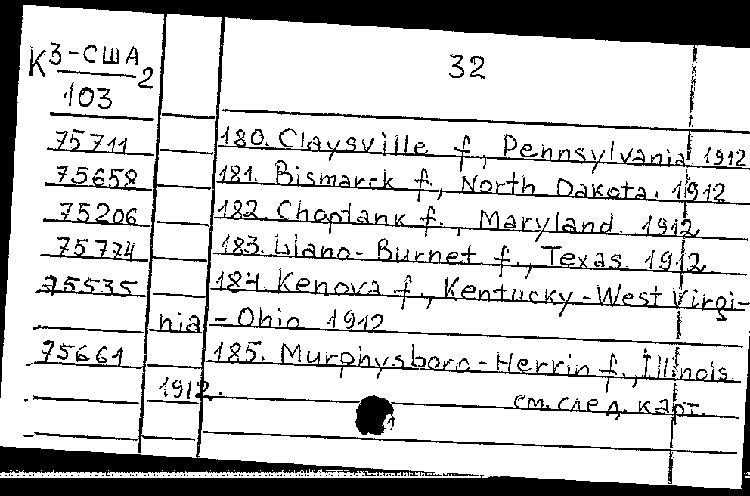 К 3-США 2 32
103
75711 180. Claysville f., Pennsylvania 1912
75658 181. Bismarck f., North Dakota. 1912
75206 182. Choptank f., Maryland 1912
75774 183. Llano-Burnet f., Texas 1912
75535 184. Kenova f., Kentucky-West Virgi-
nia - Ohio 1912
75661 185. Murphysboro-Herrin f., Illinois
1912.
см. след. карт.